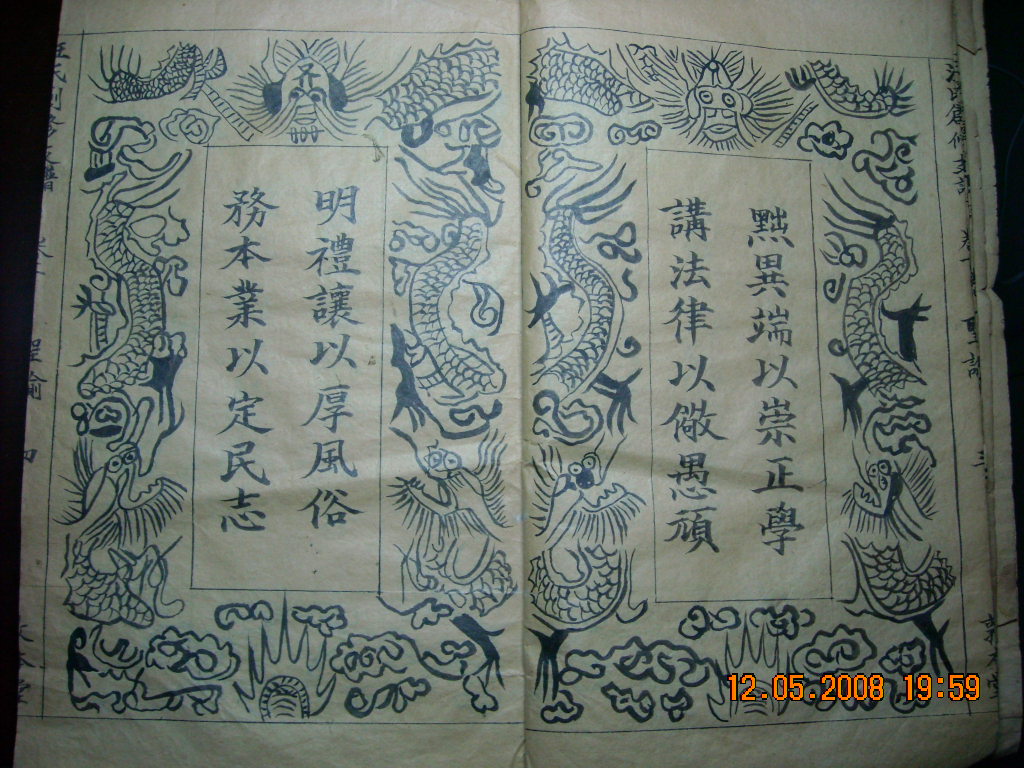 黜異端以崇正學
講法律以儆愚頑
明禮讓以厚風俗
務本業以定民志
聖諭 四
12.05.2008 19:59